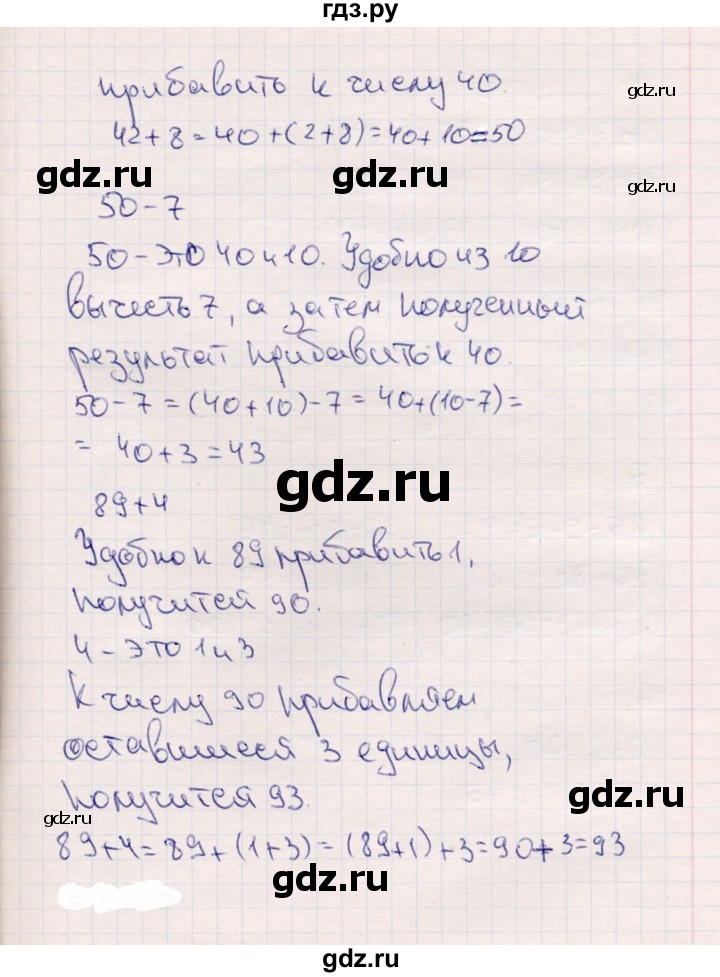 гдз.ру
прибавить к числу 40.
gdz.ru
42+8=40+(2+8)=40+10=50
gdz.ru gdz.ru
gdz.ru
50-7
50-это 40 и 10. Удобно из 10
вычесть 7, а затем полученный
результат прибавить к 40.
50-7=(40+10)-7=40+(10-7)=
= 40+3=43
gdz.ru
89+4
Удобно к 89 прибавить 1,
получится 90.
4-это 1 и 3
К числу 90 прибавляем
оставшиеся 3 единицы,
получится 93.
gdz.ru
gdz.ru
89+4=89+(1+3)=(89+1)+3=90+3=93
gdz.ru
gdz.ru